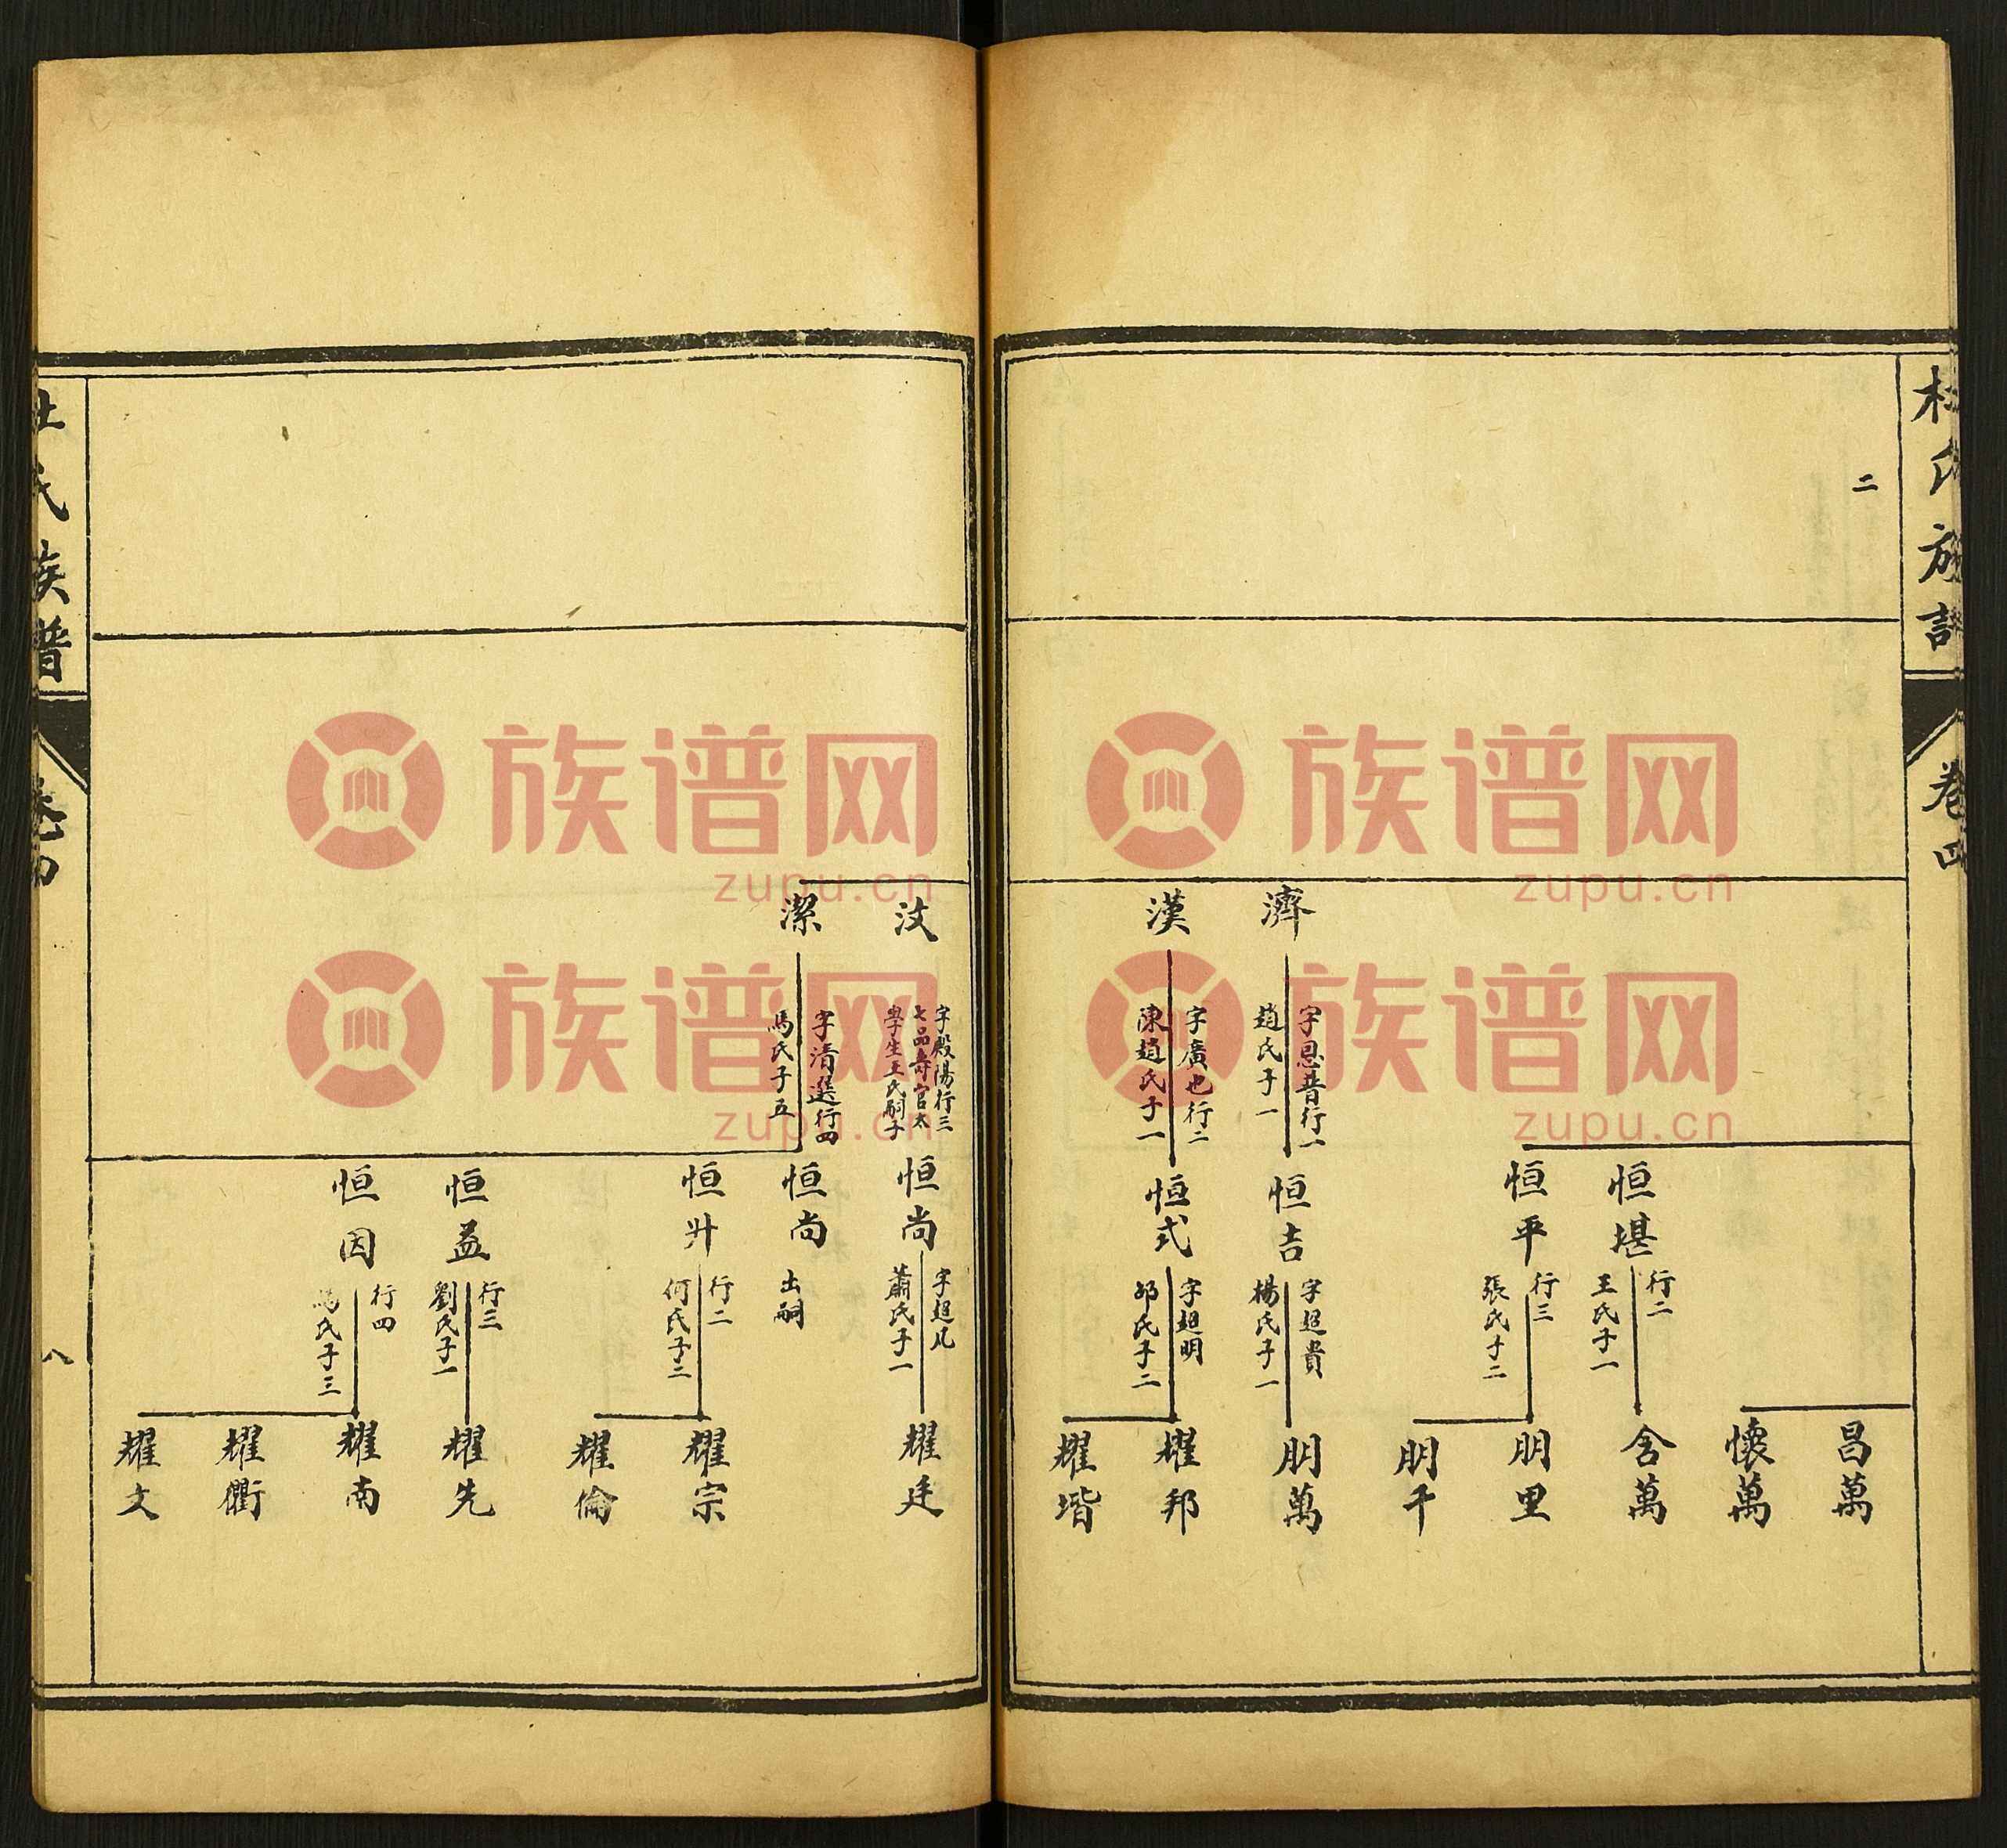 杜氏族譜
卷四
二
濟
字恩普行一
趙氏子一
漢
字廣也行二
陳趙氏子一
恒堪
行二
王氏子一
恒平
行三
張氏子二
恒吉
字超貴
楊氏子一
恒式
字超明
邰氏子二
昌萬
懷萬
含萬
朋里
朋千
朋萬
耀邦
耀堦
汶
字殿陽行三
七品壽官太
學生王氏嗣子
潔
字清選行四
馬氏子五
恒尚
字超凡
蕭氏子一
恒尚
出嗣
恒升
行二
何氏子二
恒益
行三
劉氏子一
恒因
行四
馮氏子三
耀廷
耀宗
耀倫
耀先
耀南
耀衢
耀文
杜氏族譜
卷四
八
族谱网
zupu.cn
族谱网
zupu.cn
族谱网
zupu.cn
族谱网
zupu.cn